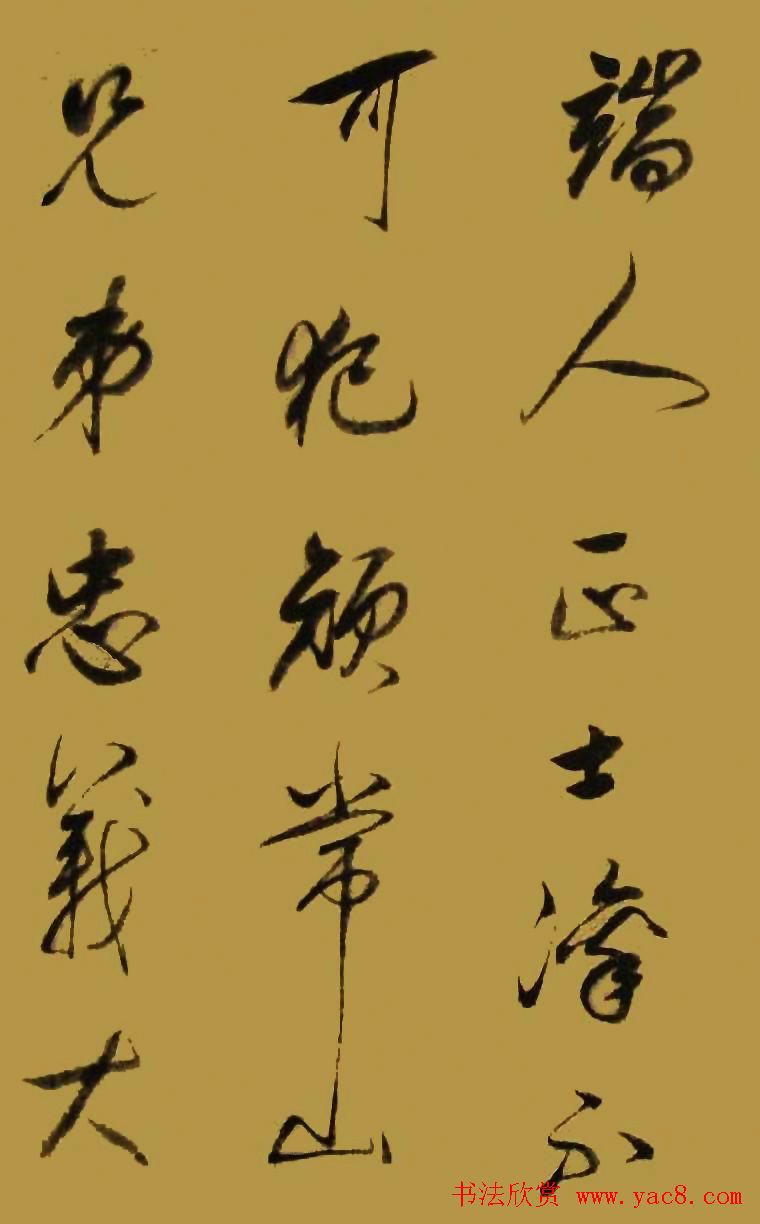 端人正士凛不
可犯颜常山
兄弟忠義大
书法欣赏 www.yac8.com